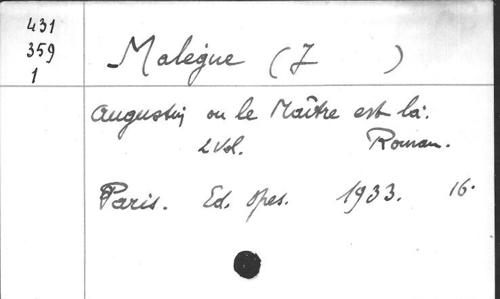 431
359
1
Malègue (J )
Augustin ou le Maître est là.
2 Vol. Roman.
Paris. Ed. Spes. 1933. 16.